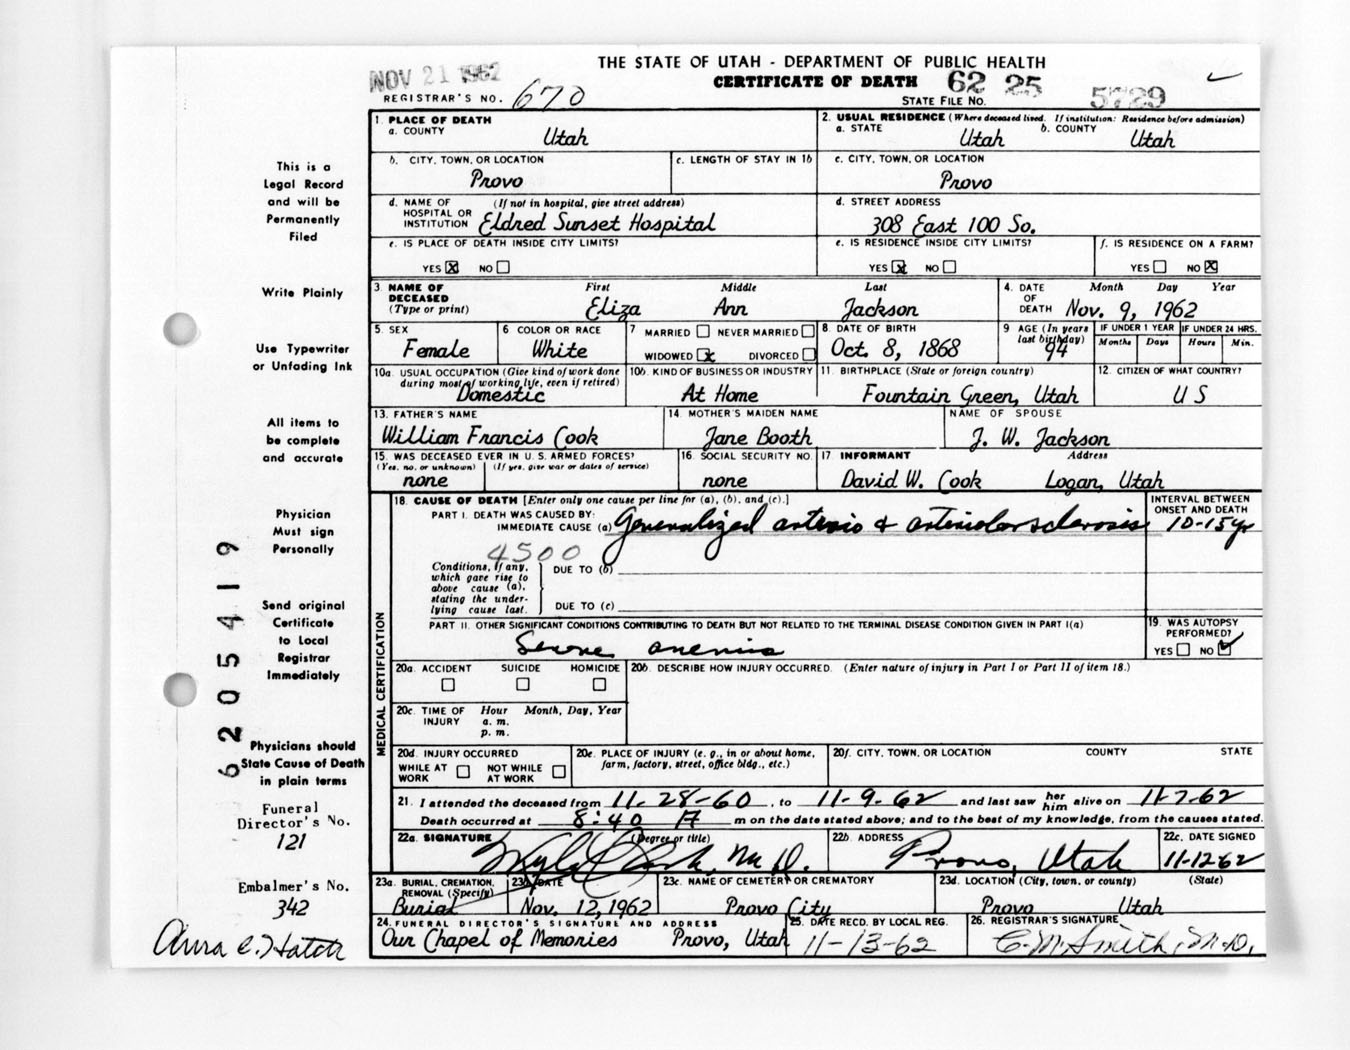 THE STATE OF UTAH - DEPARTMENT OF PUBLIC HEALTH
NOV 21 1962
CERTIFICATE OF DEATH 62 25 5729
REGISTRAR'S NO. 670
STATE FILE NO.
1. PLACE OF DEATH
a. COUNTY
Utah
2. USUAL RESIDENCE (Where deceased lived. If institution: Residence before admission)
a. STATE Utah b. COUNTY Utah
b. CITY, TOWN, OR LOCATION
Provo
c. LENGTH OF STAY IN 1b
c. CITY, TOWN, OR LOCATION
Provo
d. NAME OF HOSPITAL OR INSTITUTION (If not in hospital, give street address)
Eldred Sunset Hospital
d. STREET ADDRESS
308 East 100 So.
e. IS PLACE OF DEATH INSIDE CITY LIMITS?
YES X NO
e. IS RESIDENCE INSIDE CITY LIMITS?
YES X NO
f. IS RESIDENCE ON A FARM?
YES NO X
3. NAME OF DECEASED (Type or print)
First Middle Last
Eliza Ann Jackson
4. DATE OF DEATH Month Day Year
Nov. 9, 1962
5. SEX
Female
6 COLOR OR RACE
White
7 MARRIED NEVER MARRIED
WIDOWED X DIVORCED
8. DATE OF BIRTH
Oct. 8, 1868
9 AGE (In years last birthday)
94
IF UNDER 1 YEAR
Months Days
IF UNDER 24 HRS.
Hours Min.
10a. USUAL OCCUPATION (Give kind of work done during most of working life, even if retired)
Domestic
10b. KIND OF BUSINESS OR INDUSTRY
At Home
11. BIRTHPLACE (State or foreign country)
Fountain Green, Utah
12. CITIZEN OF WHAT COUNTRY?
U S
13. FATHER'S NAME
William Francis Cook
14. MOTHER'S MAIDEN NAME
Jane Booth
NAME OF SPOUSE
J. W. Jackson
15. WAS DECEASED EVER IN U.S. ARMED FORCES?
(Yes, no, or unknown) (If yes, give war or dates of service)
none
16. SOCIAL SECURITY NO.
none
17 INFORMANT Address
David W. Cook Logan, Utah
MEDICAL CERTIFICATION
18. CAUSE OF DEATH [Enter only one cause per line for (a), (b), and (c).]
PART I. DEATH WAS CAUSED BY:
IMMEDIATE CAUSE (a) Generalized arterio & arteriolarsclerosis
INTERVAL BETWEEN ONSET AND DEATH
10-15 yr
4500
Conditions, if any, which gave rise to above cause (a), stating the underlying cause last.
DUE TO (b)
DUE TO (c)
PART II. OTHER SIGNIFICANT CONDITIONS CONTRIBUTING TO DEATH BUT NOT RELATED TO THE TERMINAL DISEASE CONDITION GIVEN IN PART I(a)
anemia
19. WAS AUTOPSY PERFORMED?
YES NO ✓
20a. ACCIDENT SUICIDE HOMICIDE
20b. DESCRIBE HOW INJURY OCCURRED. (Enter nature of injury in Part I or Part II of item 18.)
20c. TIME OF INJURY Hour Month, Day, Year
a. m.
p. m.
20d. INJURY OCCURRED
WHILE AT WORK NOT WHILE AT WORK
20e. PLACE OF INJURY (e. g., in or about home, farm, factory, street, office bldg., etc.)
20f. CITY, TOWN, OR LOCATION COUNTY STATE
21. I attended the deceased from 11-28-60, to 11-9-62 and last saw her him alive on 11-7-62
Death occurred at 8:40 A m on the date stated above; and to the best of my knowledge, from the causes stated.
22a. SIGNATURE (Degree or title)
M.D.
22b. ADDRESS
Provo, Utah
22c. DATE SIGNED
11-12-62
23a. BURIAL, CREMATION, REMOVAL (Specify)
Burial
23b. DATE
Nov. 12, 1962
23c. NAME OF CEMETERY OR CREMATORY
Provo City
23d. LOCATION (City, town, or county) (State)
Provo Utah
24. FUNERAL DIRECTOR'S SIGNATURE AND ADDRESS
Our Chapel of Memories Provo, Utah
25. DATE RECD. BY LOCAL REG.
11-13-62
26. REGISTRAR'S SIGNATURE
C. M. Smith, M.D.
This is a
Legal Record
and will be
Permanently
Filed
Write Plainly
Use Typewriter
or Unfading Ink
All items to
be complete
and accurate
Physician
Must sign
Personally
Send original
Certificate
to Local
Registrar
Immediately
Physicians should
State Cause of Death
in plain terms
Funeral
Director's No.
121
Embalmer's No.
342
6205419